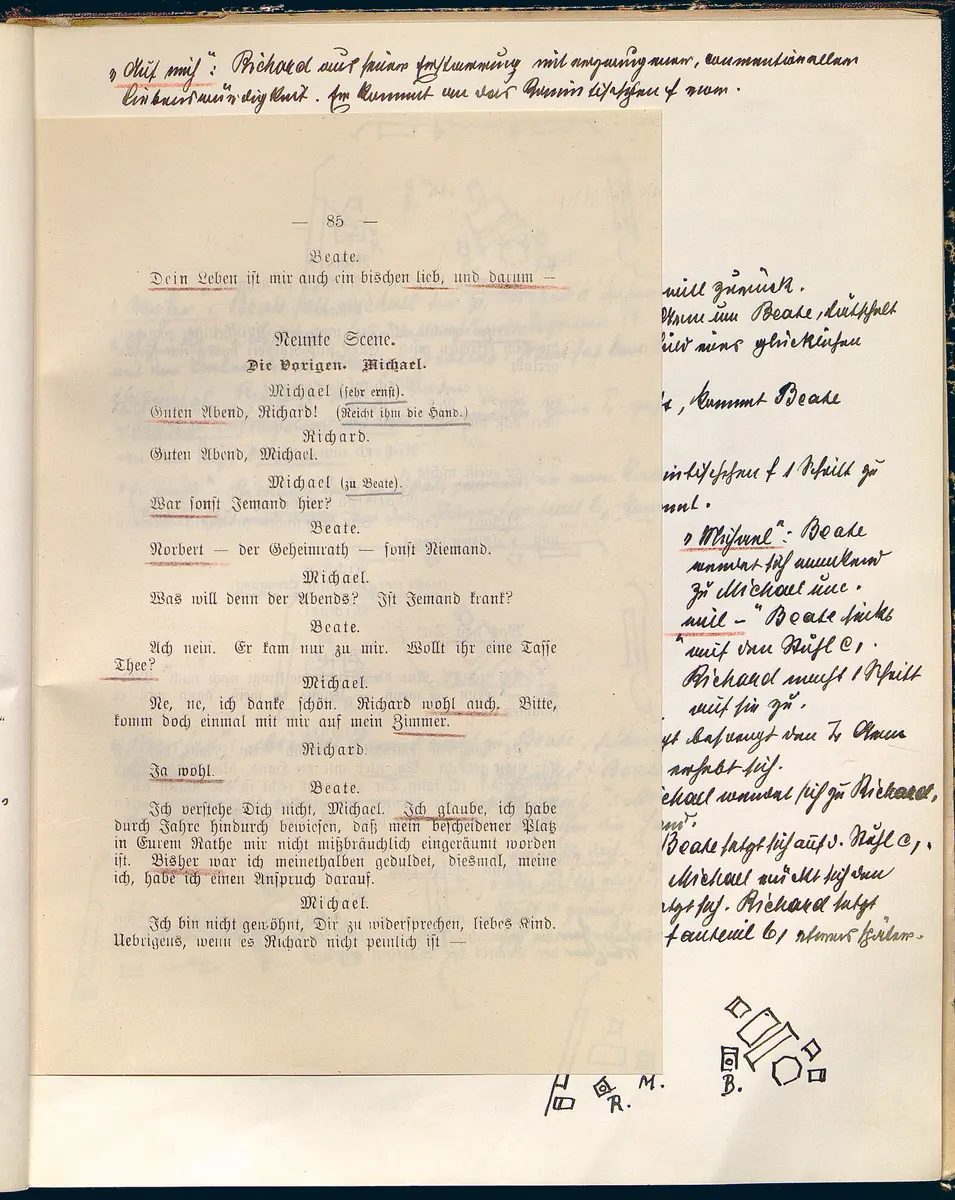 „Auf mich“: Richard aus seiner Erstarrung mit erzwungener, conventioneller
Liebenswürdigkeit. Er kommt an das
— 85 —
Beate.
Dein Leben ist mir auch ein bischen lieb, und darum —
Neunte Scene.
Die Vorigen. Michael.
Michael (sehr ernst).
Guten Abend, Richard! (Reicht ihm die Hand.)
Richard.
Guten Abend, Michael.
Michael (zu Beate).
War sonst Jemand hier?
Beate.
Norbert — der Geheimrath — sonst Niemand.
Michael.
Was will denn der Abends? Ist Jemand krank?
Beate.
Ach nein. Er kam nur zu mir. Wollt ihr eine Tasse
Thee?
Michael.
Ne, ne, ich danke schön. Richard wohl auch. Bitte,
komm doch einmal mit mir auf mein Zimmer.
Richard.
Ja wohl.
Beate.
Ich verstehe Dich nicht, Michael. Ich glaube, ich habe
durch Jahre hindurch bewiesen, daß mein bescheidener Platz
in Eurem Rathe mir nicht mißbräuchlich eingeräumt worden
ist. Bisher war ich meinethalben geduldet, diesmal, meine
ich, habe ich einen Anspruch darauf.
Michael.
Ich bin nicht gewöhnt, Dir zu widersprechen, liebes Kind.
Uebrigens, wenn es Richard nicht peinlich ist —
zurück.
um Beate, tätschelt
eines glücklichen
, kommt Beate
1 Schritt zu
„Michael“: Beate
wendet sich wankend
zu Michael um.
weil –“ Beate sinkt
auf den Stuhl c,.
Richard macht 1 Schritt
auf sie zu.
den
erhebt sich.
wendet sich zu Richard,
Beate setzt sich auf d. Stuhl c,.
Michael rückt sich den
sich. Richard setzt
fauteuil b, etwas später.
R. M. B.